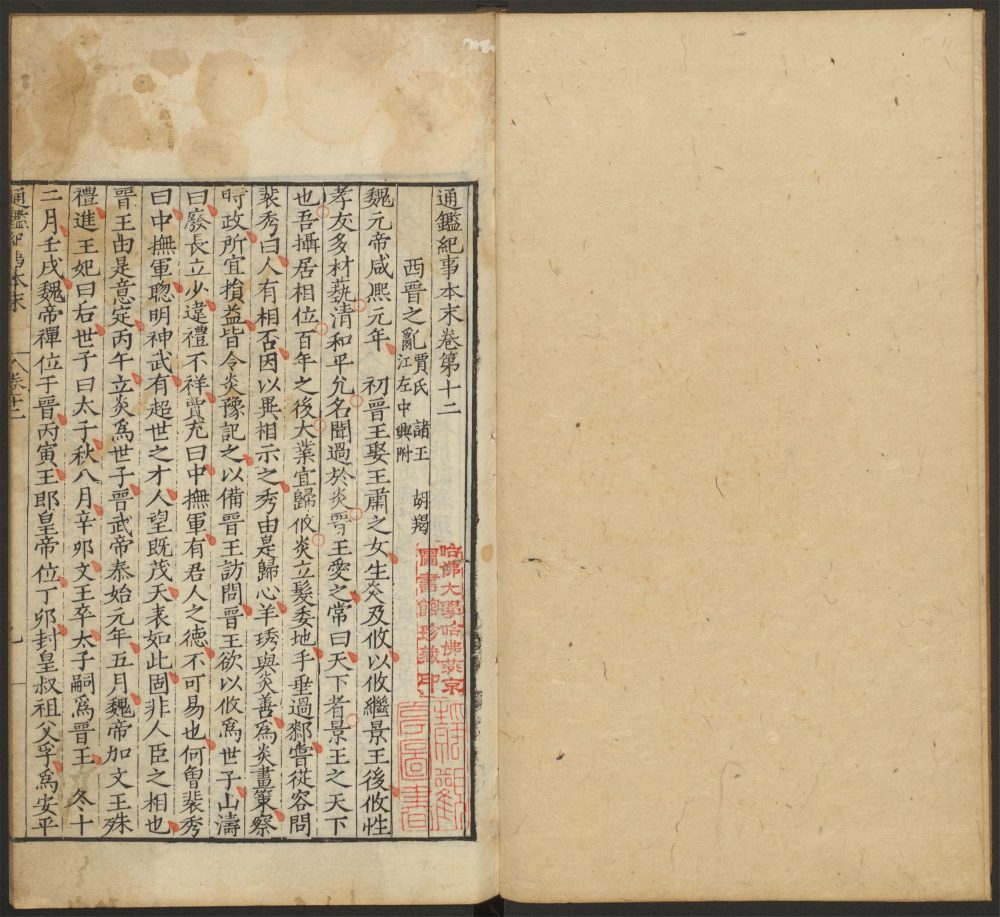 通鑑紀事本末卷第十二
西晉之亂 賈氏 諸王 胡羯
江左中興附
魏元帝咸熙元年 初晉王娶王肅之女生炎及攸以攸繼景王後攸性
孝友多材藝清和平允名聞過於炎晉王愛之常曰天下者景王之天下
也吾攝居相位百年之後大業宜歸攸炎立髮委地手垂過膝嘗從容問
裴秀曰人有相否因以異相示之秀由是歸心羊琇與炎善爲炎畫策察
時政所宜損益皆令炎豫記之以備晉王訪問晉王欲以攸爲世子山濤
曰廢長立少違禮不祥賈充曰中撫軍有君人之德不可易也何曾裴秀
曰中撫軍聰明神武有超世之才人望既茂天表如此固非人臣之相也
晉王由是意定丙午立炎爲世子晉武帝泰始元年五月魏帝加文王殊
禮進王妃曰后世子曰太子秋八月辛卯文王卒太子嗣爲晉王 冬十
二月壬戌魏帝禪位于晉丙寅王即皇帝位丁卯封皇叔祖父孚爲安平
通鑑紀事本末 卷十二 一
哈佛大學哈佛燕京
圖書館珍藏印